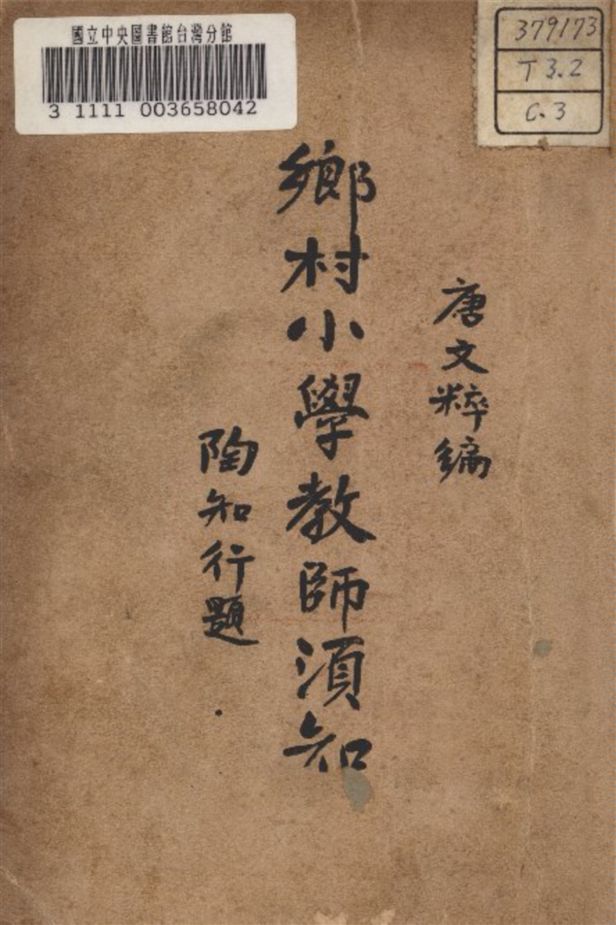 國立中央圖書館台灣分館
3 1111 003658042
379173
T3.2
C.3
唐文粹編
鄉村小學教師須知
陶知行題